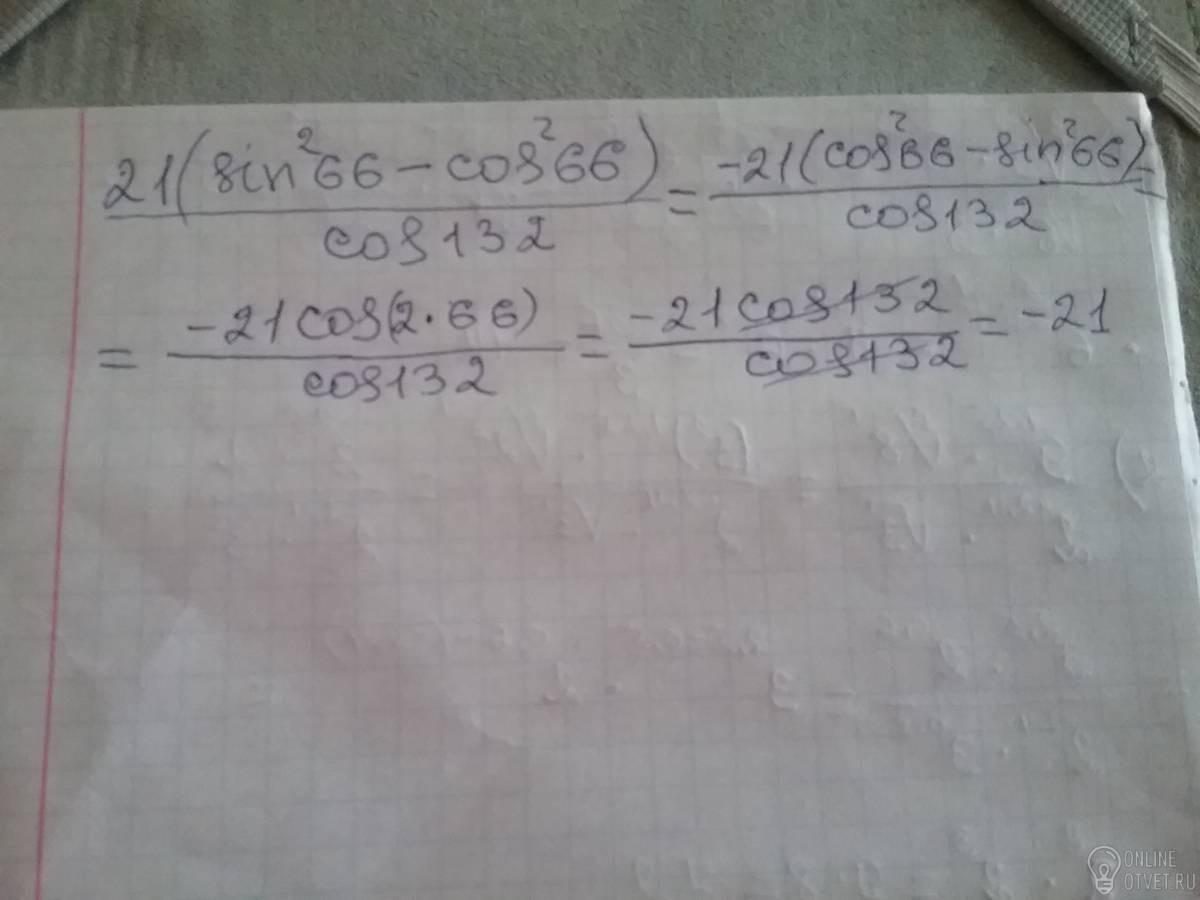 21(sin²66 − cos²66) / cos132 = −21(cos²66 − sin²66) / cos132 =
= −21cos(2·66) / cos132 = −21cos132 / cos132 = −21
ONLINE
OTVET.RU